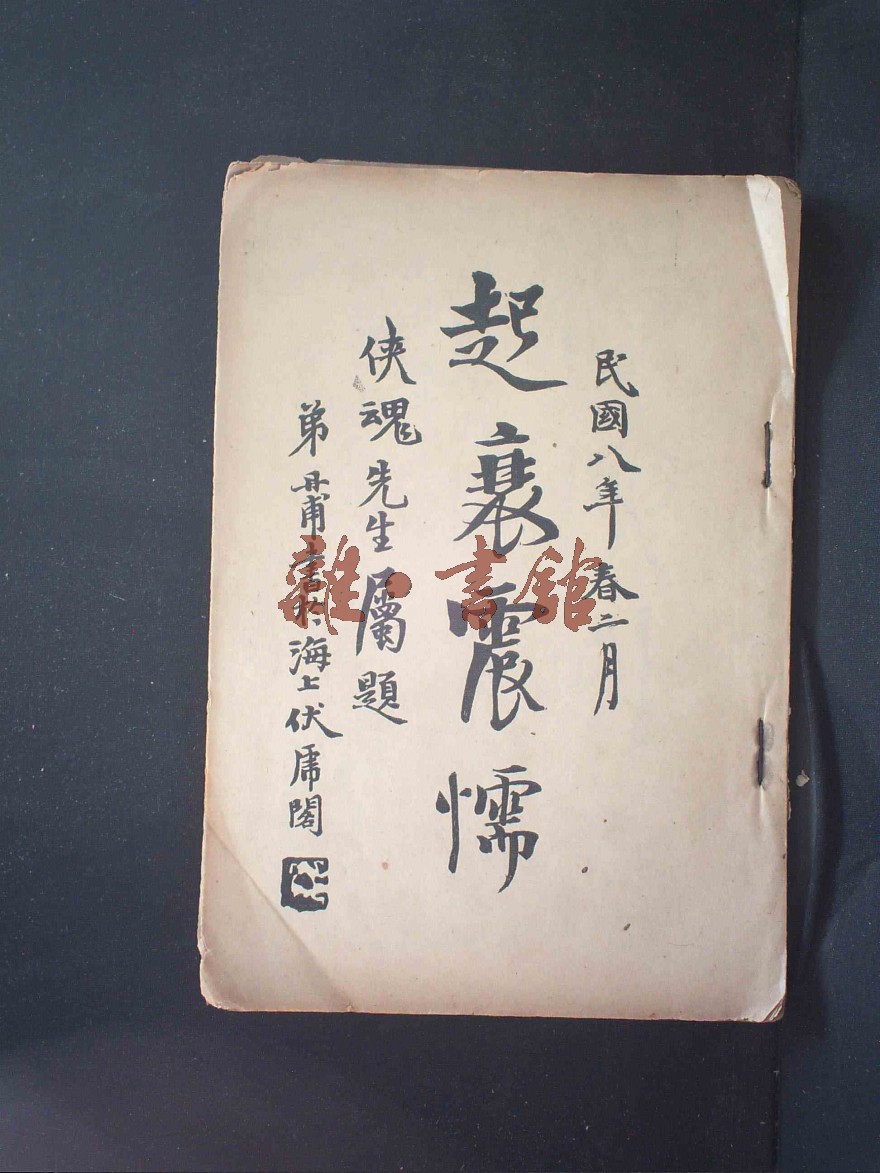 民國八年春二月
起衰震懦
俠魂先生屬題
弟冄甫書於海上伏虎閣
書館